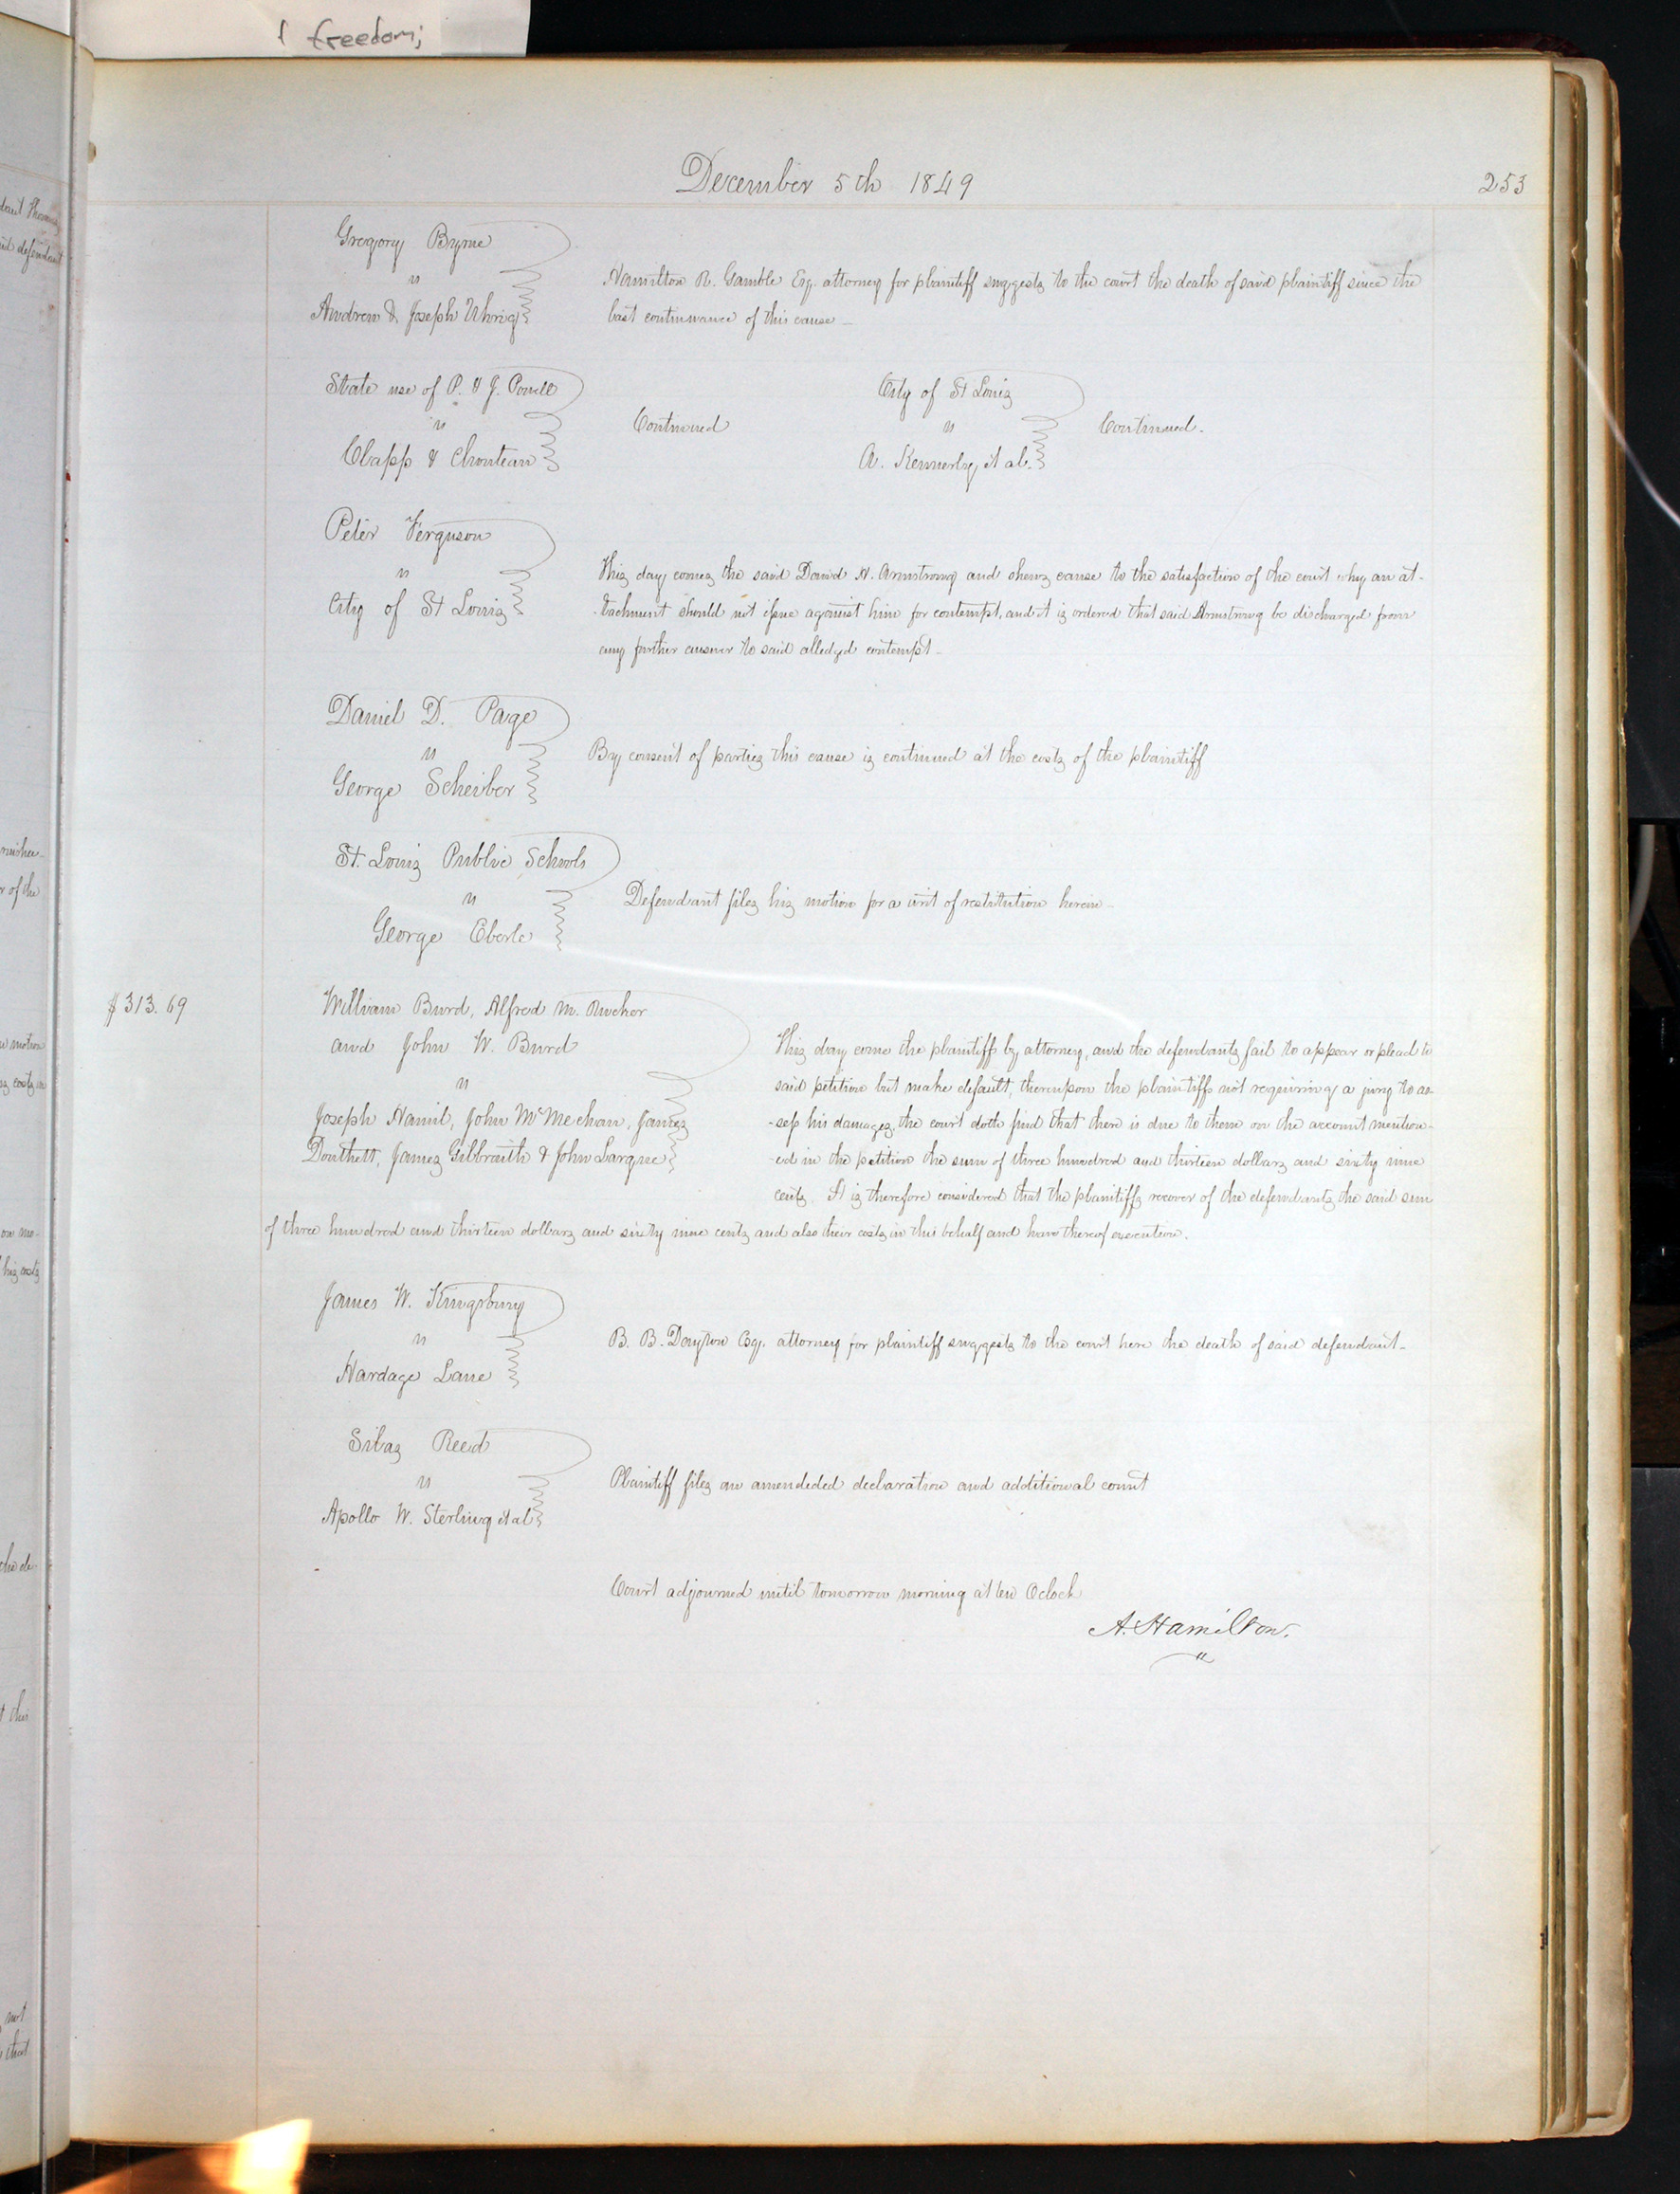 freedom;
December 5th 1849
253
Gregory Byrne
vs
Andrew & Joseph Uhrig
Hamilton R. Gamble Esq. attorney for plaintiff suggests to the court the death of said plaintiff since the
last continuance of this cause
State use of P. & J. Powell
vs
Clapp & Chouteau
Continued
City of St Louis
vs
A. Kennerly et al.
Continued.
Peter Ferguson
vs
City of St Louis
This day comes the said David H. Armstrong and shews cause to the satisfaction of the court why an at-
-tachment should not issue against him for contempt, and it is ordered that said Armstrong be discharged from
any further answer to said alledged contempt
Daniel D. Page
vs
George Scheiber
By consent of parties this cause is continued at the costs of the plaintiff
St. Louis Public Schools
vs
George Eberle
Defendant files his motion for a writ of restitution herein
$313.69
William Burd, Alfred M. Rucker
and John W. Burd
vs
Joseph Hamil, John McMechan, James
Douthett, James Gilbraith & John Largue
This day come the plaintiff by attorney, and the defendants fail to appear or plead to
said petition but make default, thereupon the plaintiffs not requiring a jury to as-
-sess his damages, the court doth find that there is due to them on the account mention-
-ed in the petition the sum of three hundred and thirteen dollars and sixty nine
cents. It is therefore considered that the plaintiffs recover of the defendants the said sum
of three hundred and thirteen dollars and sixty nine cents and also their costs in this behalf and have thereof execution.
James W. Kingsbury
vs
Hardage Lane
B. B. Dayton Esq. attorney for plaintiff suggests to the court here the death of said defendant.
Silas Reed
vs
Apollo W. Sterling et al
Plaintiff files an amendeded declaration and additional count
Court adjourned until tomorrow morning at ten Oclock
A. Hamilton.